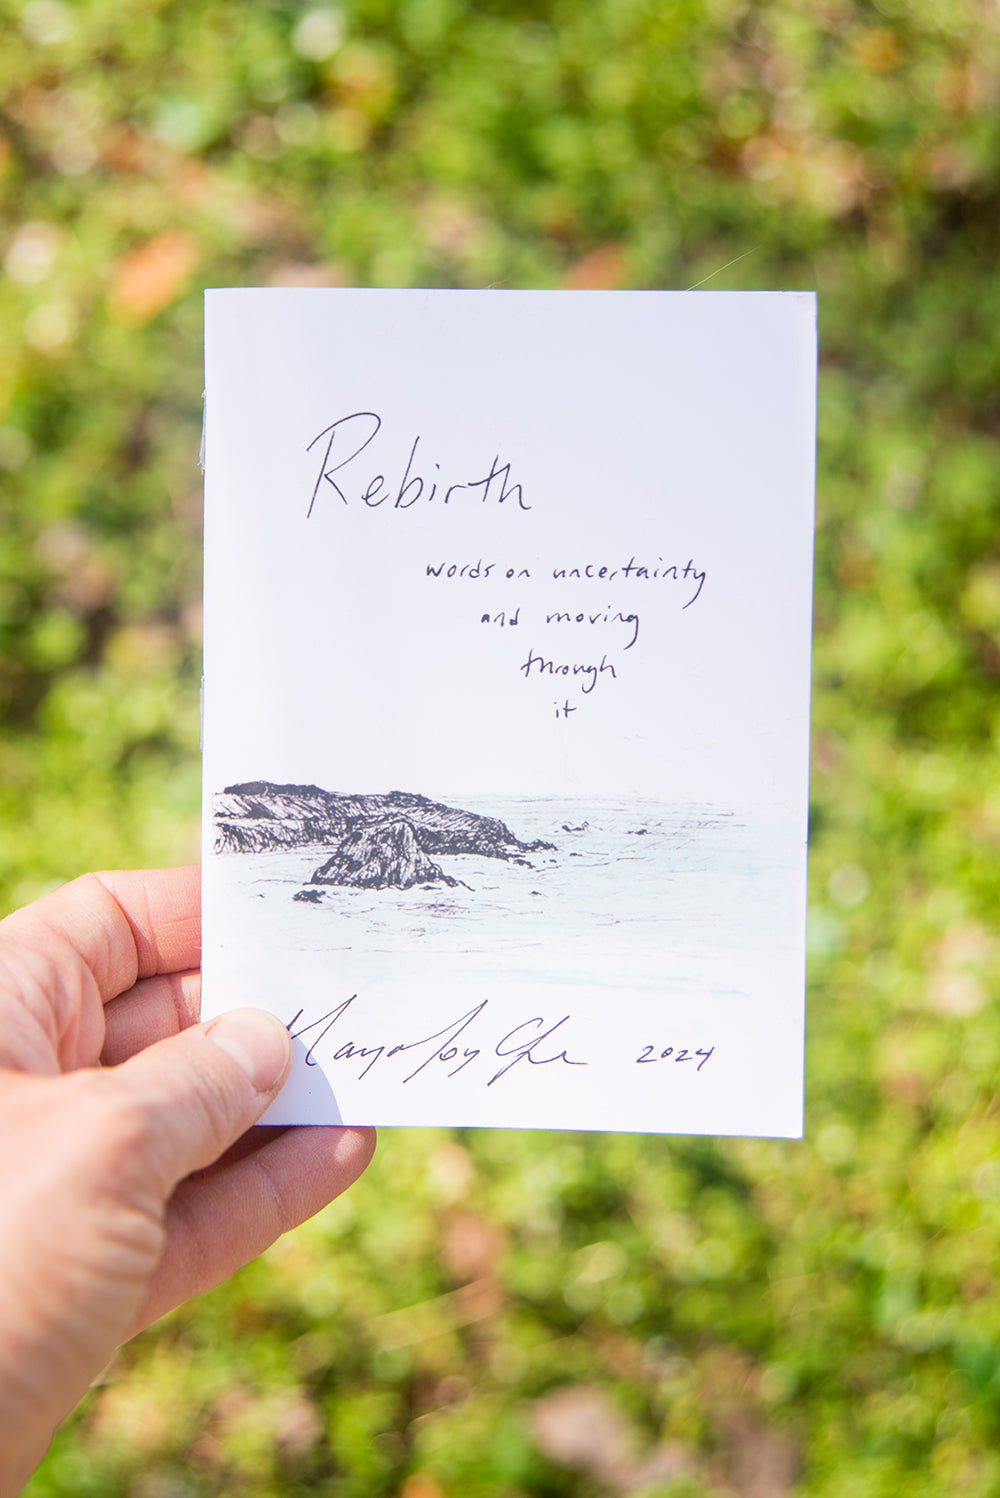 Rebirth
words on uncertainty
and moving
through
it
Joy 2024